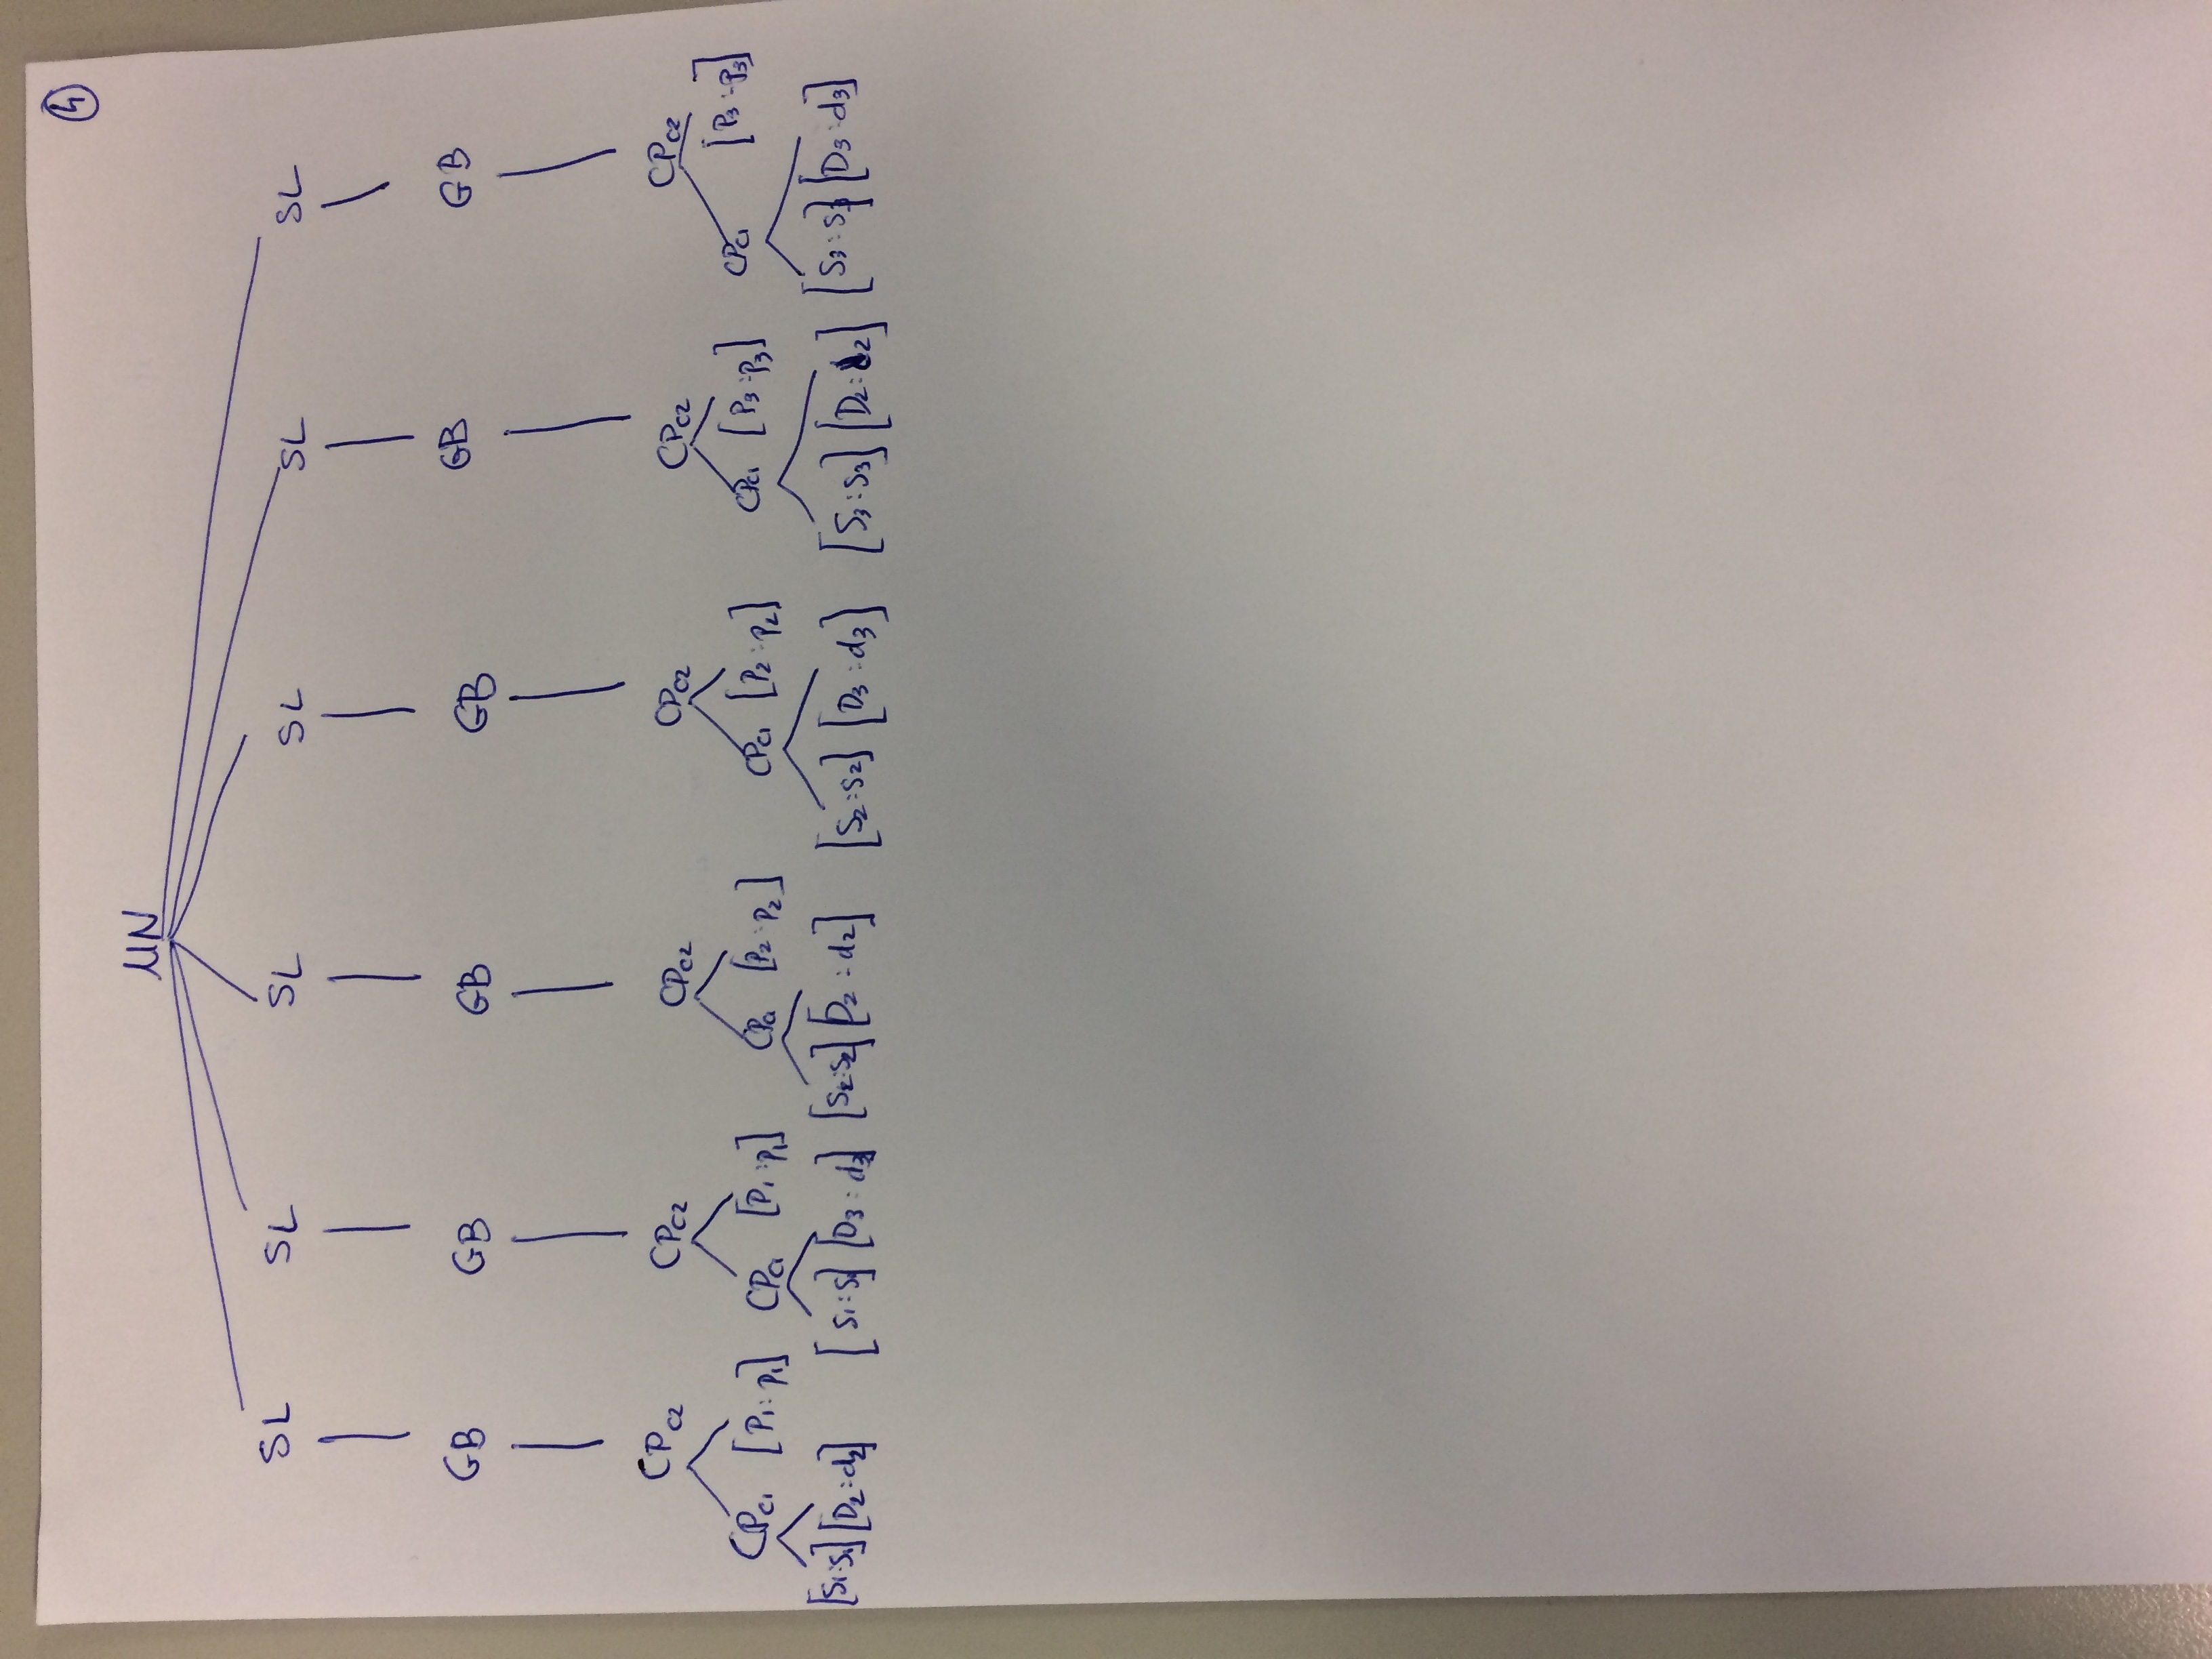 4
UN
SL SL SL SL SL SL
GB GB GB GB GB GB
CPC2 CPC2 CPC2 CPC2 CPC2 CPC2
CPC1 [P1:p1] CPC1 [P1:p1] CPC1 [P2:p2] CPC1 [P2:p2] CPC1 [P3:p3] CPC1 [P3:p3]
[S1:s1] [D2:d2] [S1:s1] [D3:d3] [S2:s2] [D2:d2] [S2:s2] [D3:d3] [S3:s3] [D2:d2] [S3:s3] [D3:d3]